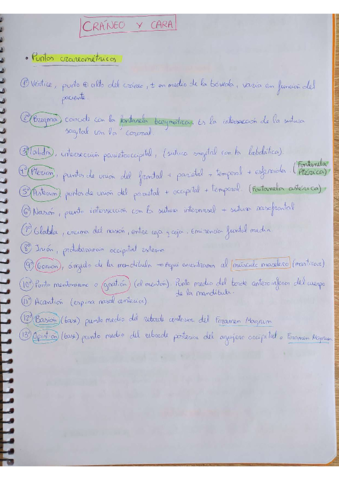 CRÁNEO Y CARA
• Puntos craneométricos
1º Vértice, punto + alto del cráneo, ± en medio de la bóveda, varía en función del
paciente.
2º Bregma, coincide con la fontanela bregmática. Es la intersección de la sutura
sagital con la coronal
3º Lambda, intersección parietooccipital, (sutura sagital con la lambdoidea)
4º Pterion, punto de unión del frontal + parietal + temporal + esfenoides (Fontanela
Ptérica)
5º Asterion punto de unión del parietal + occipital + temporal (Fontanela astérica)
6º Nasion, punto intersección con la sutura internasal + sutura nasofrontal
7º Glabela, encima del nasion, entre ceja y ceja. Eminencia frontal media
8º Inion, protuberancia occipital externa
9º Gonion, ángulo de la mandíbula → Aquí encontramos al músculo masetero (masticar)
10º Punto mentoniano o gnatión (el mentón) Punto medio del borde anteroinferior del cuerpo
de la mandíbula
11º Acantion (espina nasal anterior)
12º Basion (base) punto medio del reborde anterior del Foramen Magnum
13º (base) punto medio del reborde posterior del agujero occipital = Foramen Magnum